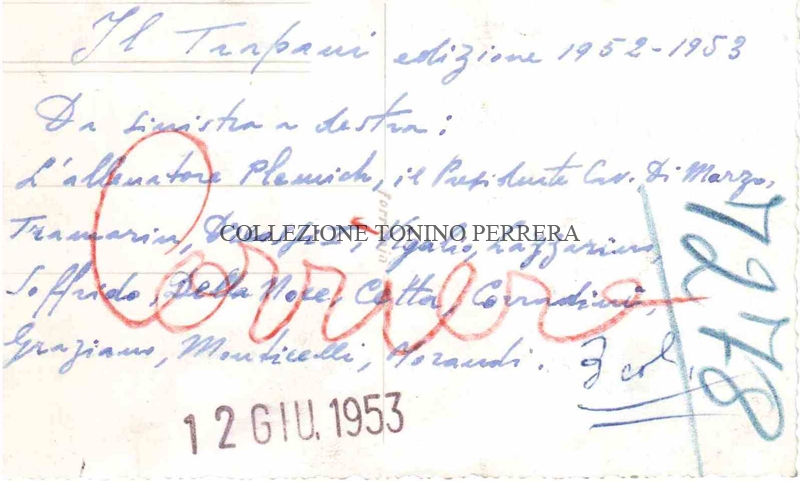 Il Trapani edizione 1952-1953
Da sinistra a destra:
L'allenatore Plemich, il Presidente Cav. Di Marzo,
Tramarin, Vigalio, Lazzarino,
Soffrido, Della Noce, Cetta, Corradini,
Graziano, Monticelli, Morandi. 3 col.
COLLEZIONE TONINO PERRERA
Corriere
7278
12 GIU. 1953